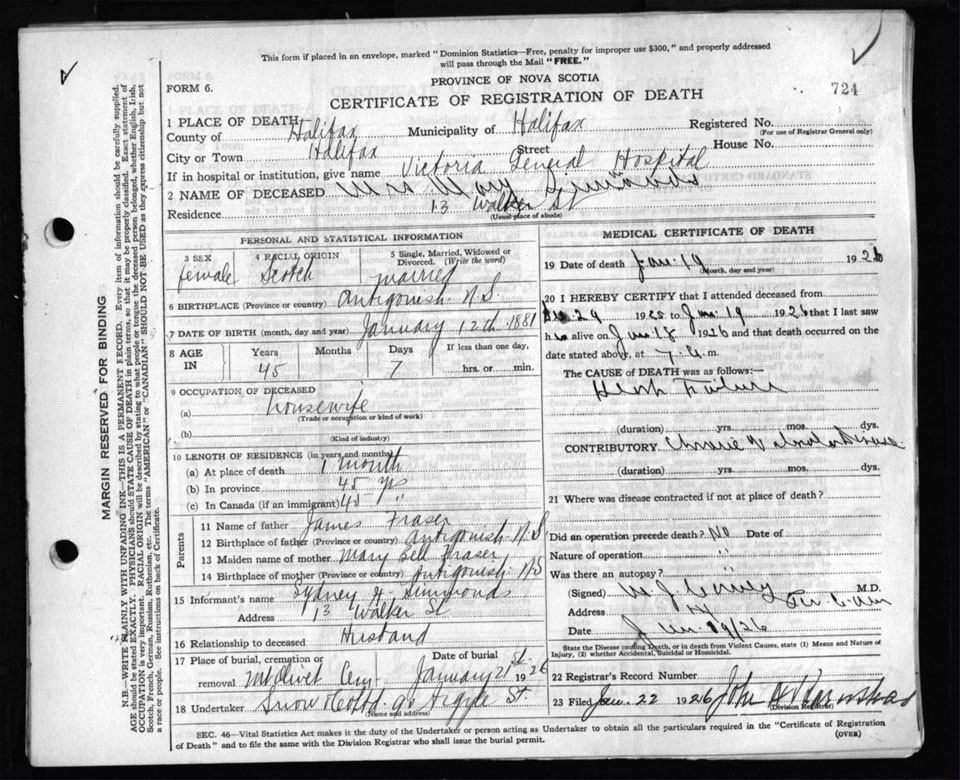 This form if placed in an envelope, marked "Dominion Statistics—Free, penalty for improper use $300," and properly addressed
will pass through the Mail "FREE."
PROVINCE OF NOVA SCOTIA
FORM 6.
CERTIFICATE OF REGISTRATION OF DEATH
724
1 PLACE OF DEATH
County of Halifax Municipality of Halifax Registered No.
(For use of Registrar General only)
City or Town Halifax Street House No.
If in hospital or institution, give name Victoria General Hospital
2 NAME OF DECEASED Mrs Mary Simmonds
Residence 13 Walker St
(Usual place of abode)
PERSONAL AND STATISTICAL INFORMATION
3 SEX 4 RACIAL ORIGIN 5 Single, Married, Widowed or Divorced. (Write the word)
female Scotch married
6 BIRTHPLACE (Province or country) Antigonish N.S.
7 DATE OF BIRTH (month, day and year) January 12th 1881
8 AGE IN Years Months Days If less than one day,
45 7 hrs. or min.
9 OCCUPATION OF DECEASED
(a) housewife
(Trade or occupation or kind of work)
(b)
(Kind of industry)
10 LENGTH OF RESIDENCE (in years and months)
(a) At place of death 1 month
(b) In province 45 yrs
(c) In Canada (if an immigrant) 45 "
Parents
11 Name of father James Fraser
12 Birthplace of father (Province or country) Antigonish N S
13 Maiden name of mother Mary Bell Fraser
14 Birthplace of mother (Province or country) Antigonish NS
15 Informant's name Sydney Simmonds
Address 13 Walker St
16 Relationship to deceased Husband
17 Place of burial, cremation or removal Mt Olivet Cem Date of burial January 21st 1926
18 Undertaker Snow & Co Ltd 90 Argyle St.
(Name and address)
MEDICAL CERTIFICATE OF DEATH
19 Date of death Jan. 19 1926
(Month, day and year)
20 I HEREBY CERTIFY that I attended deceased from
Dec 29 1925 to Jan 19 1926 that I last saw
her alive on Jan 18 1926 and that death occurred on
date stated above, at 7 a.m.
The CAUSE OF DEATH was as follows:
Heart Failure
(duration) yrs. mos. dys.
CONTRIBUTORY Chronic Valvular Disease
(duration) yrs. mos. dys.
21 Where was disease contracted if not at place of death?
Did an operation precede death? No Date of
Nature of operation "
Was there an autopsy? "
(Signed) M.D.
Address
Date Jan 19/26
State the Disease causing Death, or in death from Violent Causes, state (1) Means and Nature of
Injury, (2) whether Accidental, Suicidal or Homicidal.
22 Registrar's Record Number
23 Filed Jan. 22 1926 John
(Division Registrar)
SEC. 46—Vital Statistics Act makes it the duty of the Undertaker or person acting as Undertaker to obtain all the particulars required in the "Certificate of Registration
of Death" and to file the same with the Division Registrar who shall issue the burial permit.
(OVER)
MARGIN RESERVED FOR BINDING
N.B.—WRITE PLAINLY WITH UNFADING INK—THIS IS A PERMANENT RECORD. Every item of information should be carefully supplied.
AGE should be stated EXACTLY. PHYSICIANS should STATE CAUSE OF DEATH in plain terms, so that it may be properly classified. Exact statement of
OCCUPATION is very important. RACIAL ORIGIN will be described by stating to what people or tongue the deceased person belonged, whether English, Irish,
Scotch, French, German, Russian, Ruthenian, etc. The terms "AMERICAN" or "CANADIAN" SHOULD NOT BE USED as they express citizenship but not
a race or people. See instructions on back of Certificate.